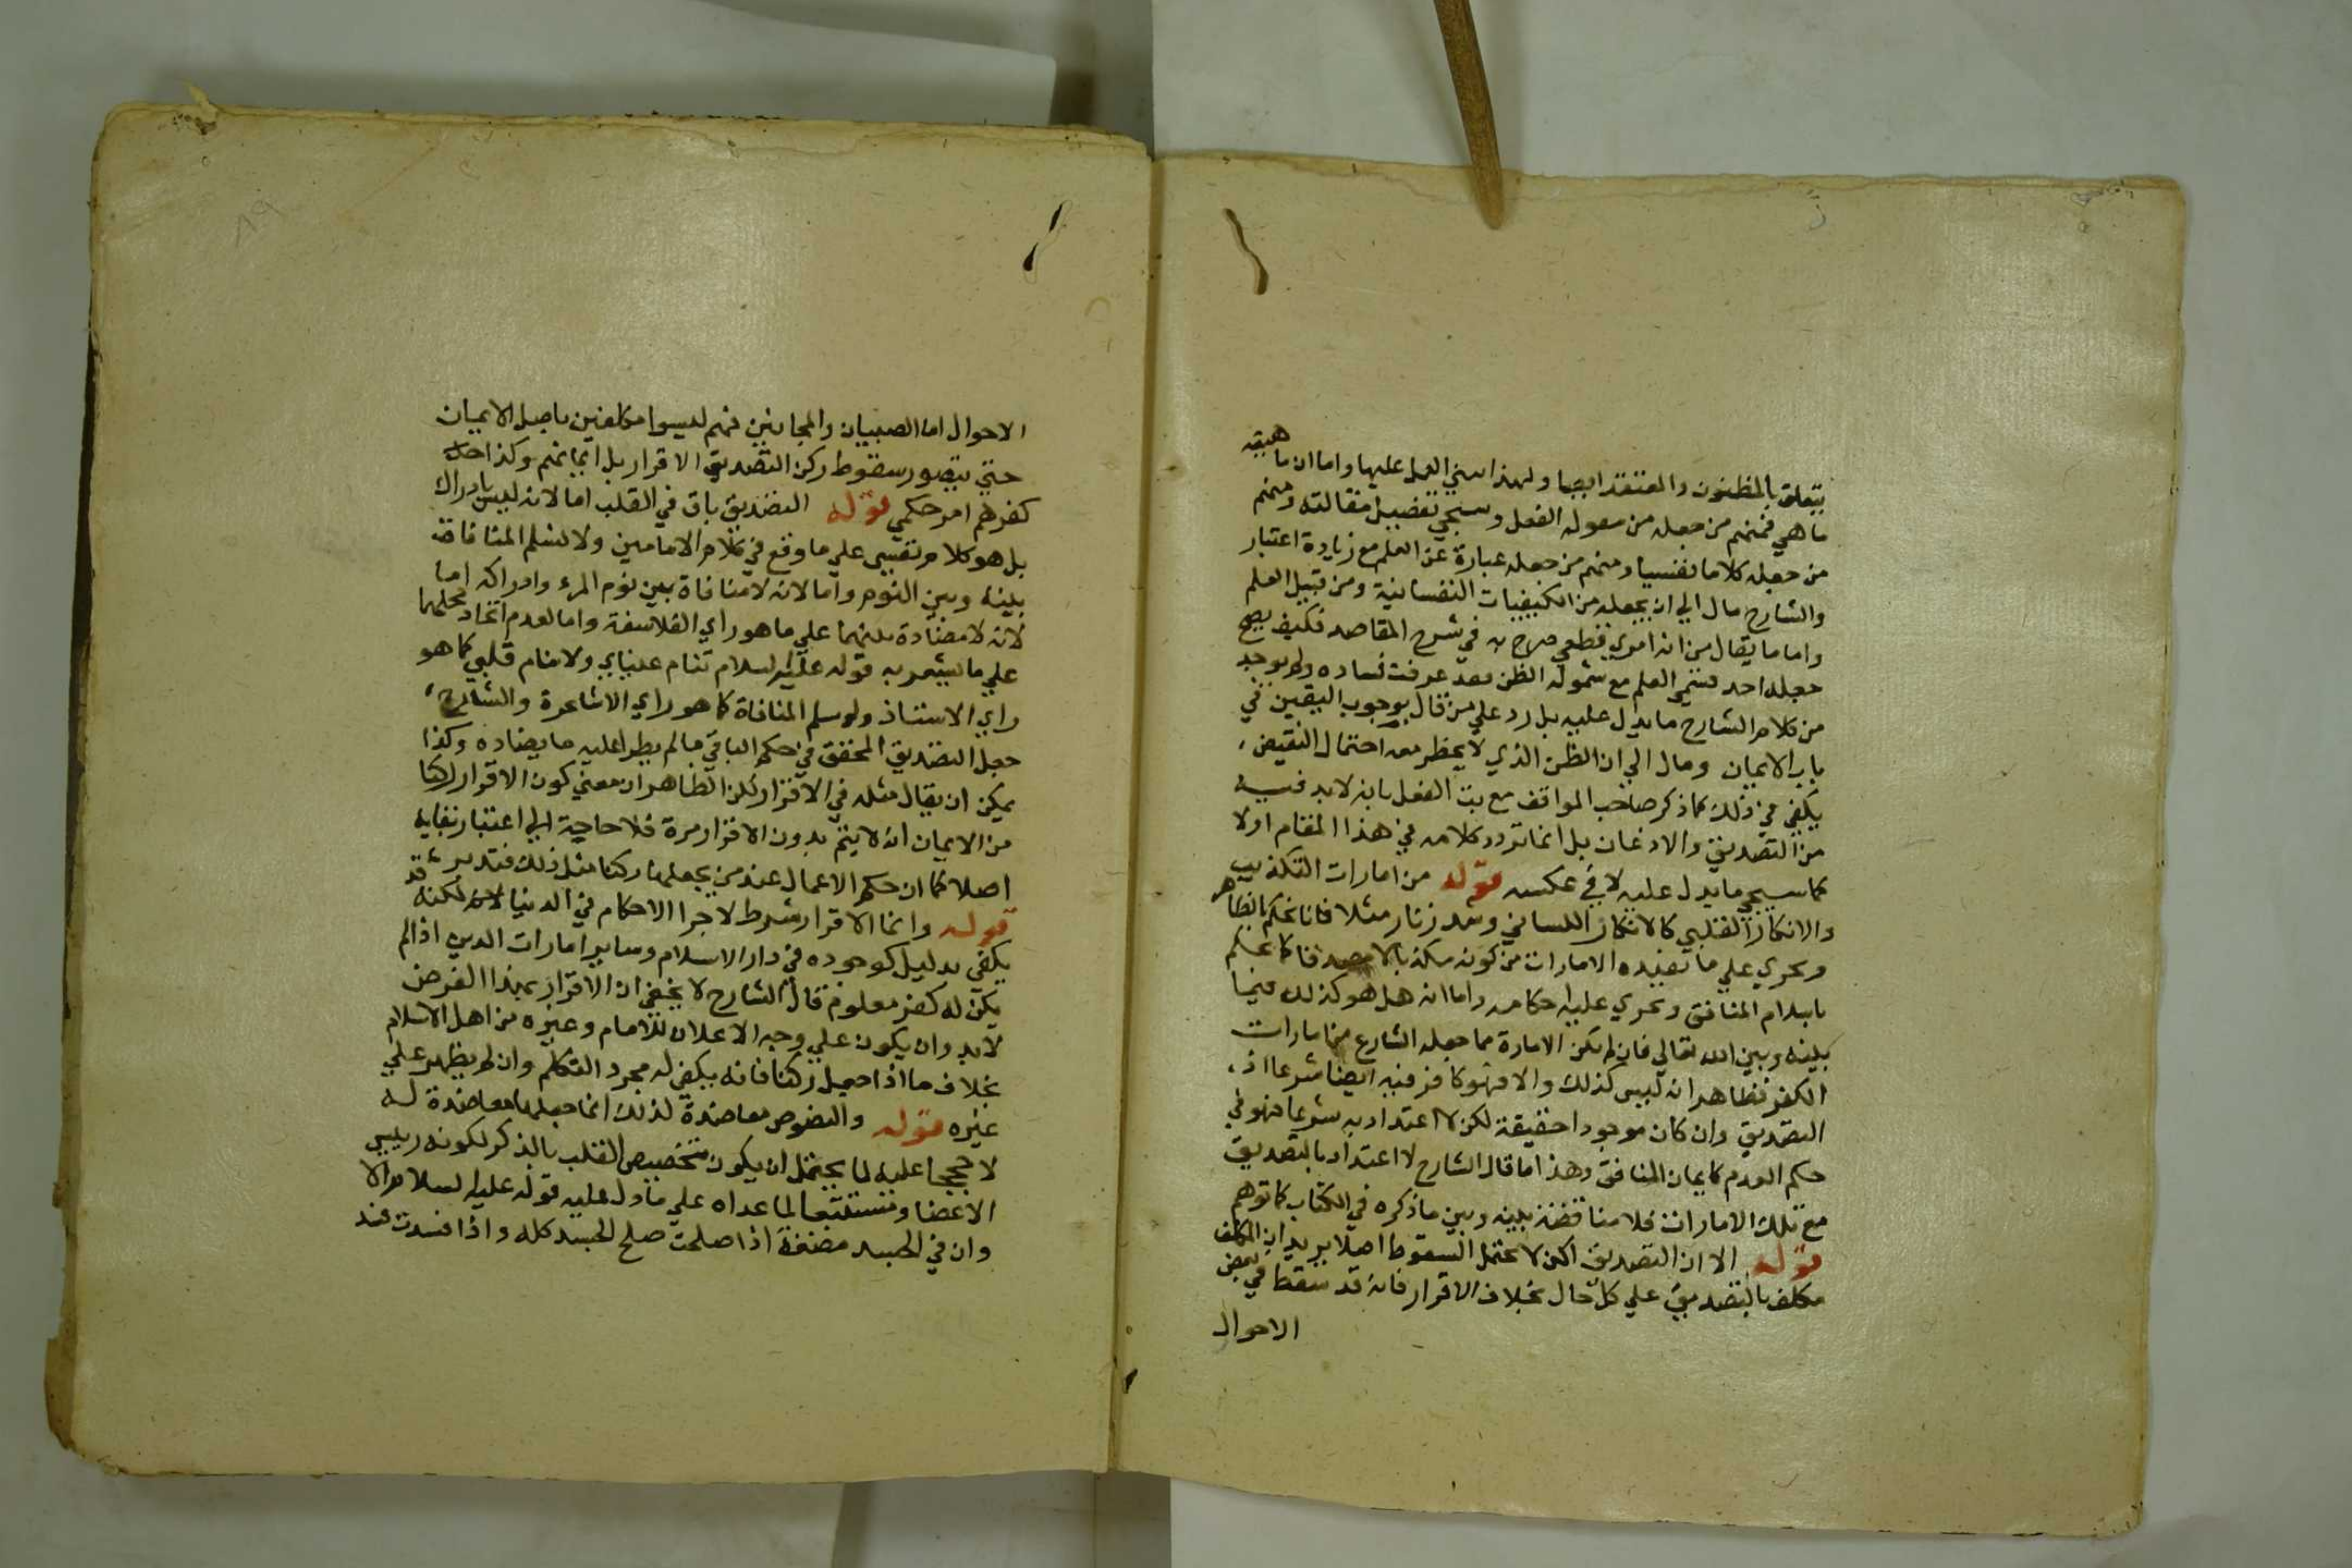 يتعلق بالمظنون والمعتقد ايضا ولهذا ابتني العمل عليها واما ان ماهيته
ما هي فمنهم من جعله من مقولة الفعل وسيجي تفصيل مقالته ومنهم
من جعله كلاما نفسيا ومنهم من جعله عبارة عن العلم مع زيادة اعتبار
والشارح مال الي ان يجعله من الكيفيات النفسانية ومن قبيل العلم
واما ما يقال من انه امري قطعي صرح به في شرح المقاصد فكيف يصح
جعله احد قسمي العلم مع شموله الظن فقد عرفت فساده ولم يوجد
من كلام الشارح ما يدل عليه بل رد علي من قال بوجوب اليقين في
باب الايمان ومال الي ان الظن الذي لا يخطر معه احتمال النقيض
يكفي في ذلك كما ذكر صاحب المواقف مع بت الفعل بانه لابد فيه
من التصديق والاذعان بل انما تردد كلامه في هذا المقام اولا
كما سيجي ما يدل عليه لا في عكسه قوله من امارات التكذيب
والانكار القلبي كالانكار اللساني وشد زنار مثلا فانا نحكم بالظاهر
ونجري علي ما تفيده الامارات من كونه مكذبا لا مصدقا كما نحكم
باسلام المنافق ونجري عليه احكامه واما انه هل هو كذلك فيما
بينه وبين الله تعالي فان لم تكن الامارة مما جعله الشارع من امارات
الكفر فظاهر انه ليس كذلك والا فهو كافر فيه ايضا شرعا اذ
التصديق وان كان موجودا حقيقة لكن لا اعتداد به شرعا فهو في
حكم العدم كايمان المنافق وهذا ما قال الشارح لا اعتداد بالتصديق
مع تلك الامارات فلا مناقضة بينه وبين ما ذكره في الكتاب كما توهم
قوله الا ان التصديق ركن لا يحتمل السقوط اصلا يريد ان المكلف
مكلف بالتصديق علي كل حال بخلاف الاقرار فانه قد سقط في بعض
الاحوال
الاحوال اما الصبيان والمجانين فهم ليسوا مكلفين باصل الايمان
حتي يتصور سقوط ركن التصديق الاقرار بل ايمانهم وكذا حال
كفرهم امر حكمي قوله التصديق باق في القلب اما لانه ليس بادراك
بل هو كلام نفسي علي ما وقع في كلام الامامين ولا نسلم المنافاة
بينه وبين النوم واما لانه لا منافاة بين نوم المرء وادراكه اما
لانه لا مضادة بينهما علي ما هو راي الفلاسفة واما لعدم اتحاد محلهما
علي ما يشعر به قوله عليه السلام تنام عيناي ولا ينام قلبي كما هو
راي الاستاذ ولو سلم المنافاة كما هو راي الاشاعرة والشارع
جعل التصديق المحقق في حكم الباقي ما لم يطرا عليه ما يضاده وكذا
يمكن ان يقال مثله في الاقرار لكن الظاهر ان معني كون الاقرار ركنا
من الايمان انه لا يتم بدون الاقرار مرة فلا حاجة الي اعتبار بقايه
اصلا كما ان حكم الاعمال عند من يجعلها ركنا مثل ذلك فتدبر
قوله وانما الاقرار شرط لاجرا الاحكام في الدنيا لكنه قد
يكفي بدليل كوجوده في دار الاسلام وساير امارات الدين اذا لم
يكن له كفر معلوم قال الشارح لا يخفي ان الاقرار بهذا الغرض
لابد وان يكون علي وجه الاعلان للامام وغيره من اهل الاسلام
بخلاف ما اذا جعل ركنا فانه يكفي له مجرد التكلم وان لم يظهر علي
غيره قوله والنصوص معاضدة لذلك انما جعلها معاضدة له
لا حججا عليه لما يحتمل ان يكون تخصيص القلب بالذكر لكونه رييس
الاعضا ومستتبعا لما عداه علي ما دل عليه قوله عليه السلام الا
وان في الجسد مضغة اذا صلحت صلح الجسد كله واذا فسدت فسد